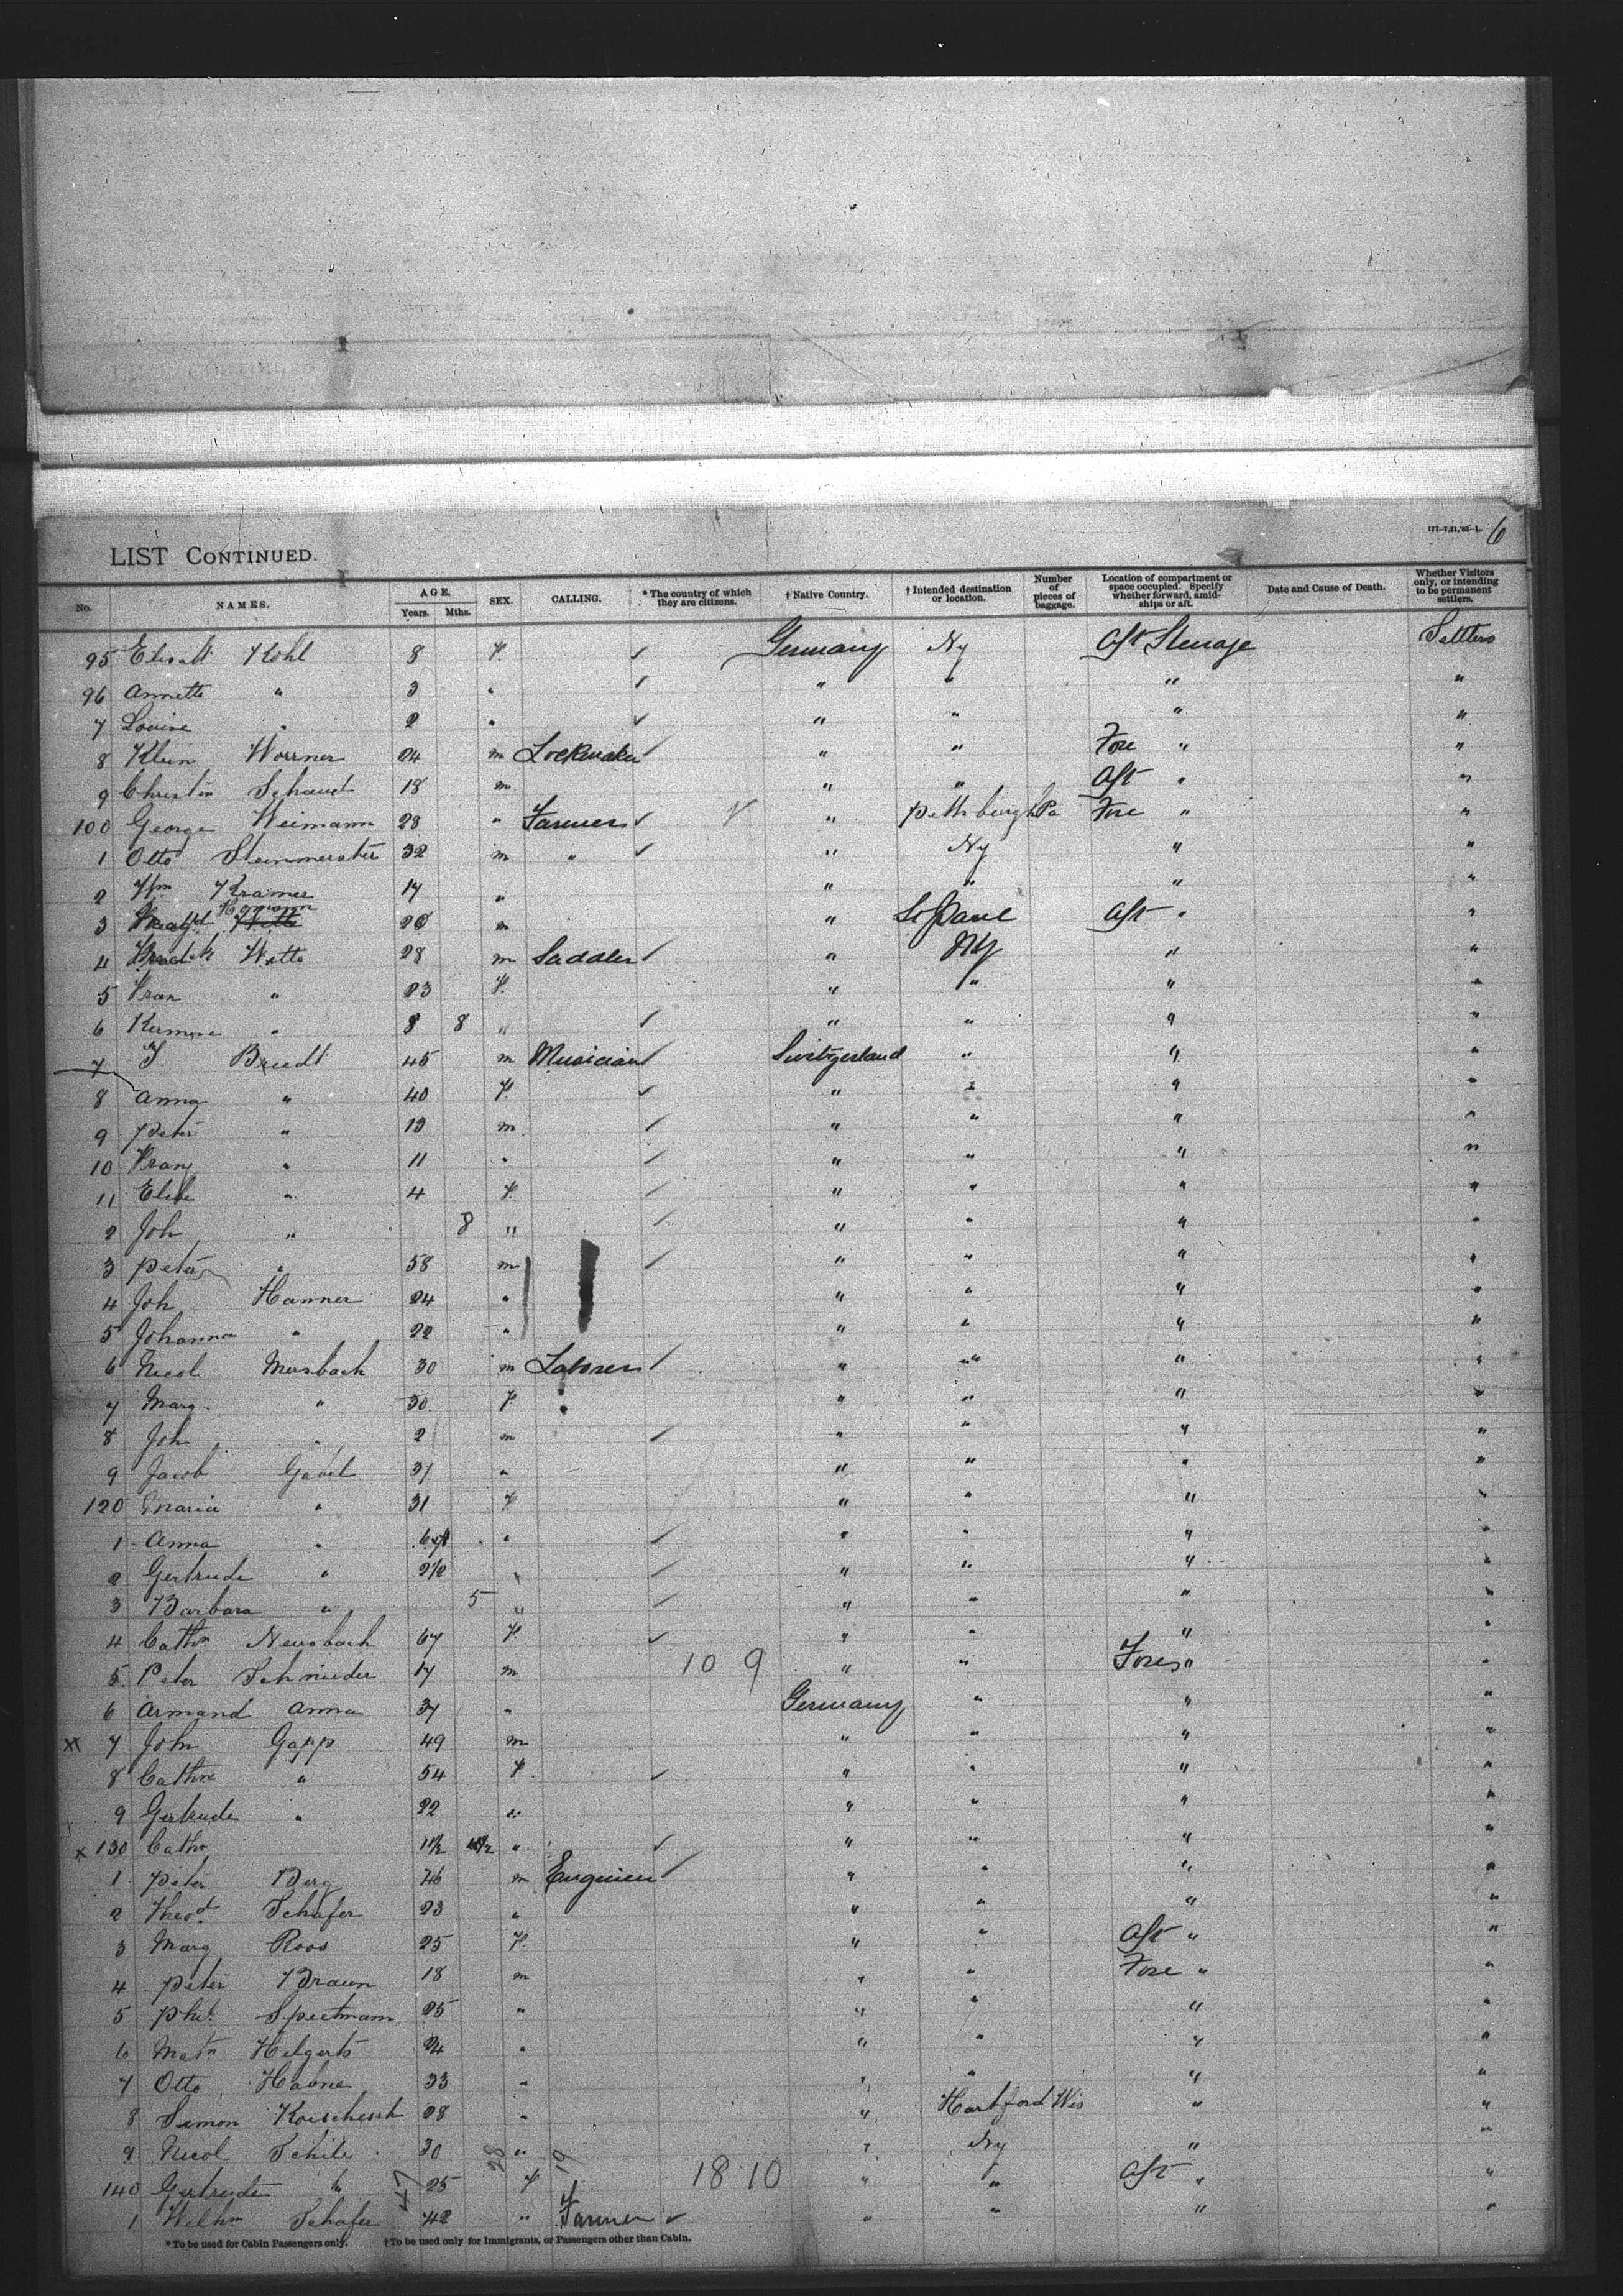 177-7.21.'93-L. 6
LIST CONTINUED.
No. NAMES. AGE. Years. Mths. SEX. CALLING. * The country of which they are citizens. † Native Country. † Intended destination or location. Number of pieces of baggage. Location of compartment or space occupied. Specify whether forward, amidships or aft. Date and Cause of Death. Whether Visitors only, or intending to be permanent settlers.
95 Kohl 8 F. ✓ Germany Ny Aft Steerage Settlers
96 Annette " 3 " ✓ " " " "
7 Louise " 2 " ✓ " " " "
8 Klein Worrner 24 m Lockmaker ✓ " " Fore " "
9 Christin Schaud 18 m " " Aft " "
100 George Weimann 28 " Farmer ✓ " Pittsburgh Pa Fore " "
1 Otto Steinmeister 32 m " ✓ " Ny " "
2 Wm Kramer 17 " " " " "
3 Hamann m " St Paul Aft " "
4 Witte 28 m Saddler ✓ " NY " "
5 Fran " 23 F. " " " "
6 " 8 8 " ✓ " " " "
7 Bredt 45 m Musician ✓ Switzerland " " "
8 Anna " 40 F. ✓ " " " "
9 Peter " 13 m ✓ " " " "
10 Franz " 11 " ✓ " " " "
11 Elise " 4 F. ✓ " " " "
2 Joh " 8 " ✓ " " " "
3 Peter " 58 m ✓ " " " "
4 Joh Hanner 24 " " " " "
5 Johanna " 22 " " " " "
6 Nicol Mersbach 30 m Laborer ✓ " " " "
7 Marg. " 30 F. " " " "
8 Joh " 2 m ✓ " " " "
9 Jacob Gabel 37 " " " " "
120 Maria " 31 F " " " "
1 Anna " " ✓ " " " "
2 Gertrude " 2 1/2 " ✓ " " " "
3 Barbara " 5 " ✓ " " " "
4 Cathn Neusbach 67 F. ✓ " " " "
5 Peter Schnieder 17 m 10 9 " " Fore " "
6 Armand Anna 37 " Germany " " "
X 7 John Gapp 49 m " " " "
8 Cathne " 54 F. ✓ " " " "
9 Gertrude " 22 " " " " "
x 130 Cathn 11/2 " ✓ " " " "
1 Peter Berg 46 m Enginier ✓ " " " "
2 Theod. Schafer 23 " " " " "
3 Marg Roos 25 F. " " Aft " "
4 Peter Braun 18 m " " Fore " "
5 Phil. Spietmann 25 " " " " "
6 Matn Helgerts 24 " " " " "
7 Otto Hahne 33 " " " " "
8 Simon 28 " " Hartford Wis " "
9 Nicol Schile 30 " " Ny " "
140 Gertrude " 25 F 18 10 " " Aft " "
47 28 19
1 Wilhm Schafer 42 " Farmer ✓ " " " "
* To be used for Cabin Passengers only. † To be used only for Immigrants, or Passengers other than Cabin.